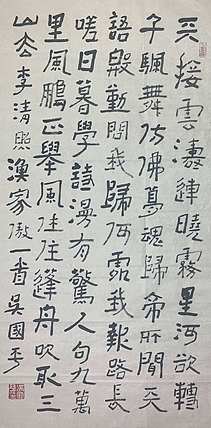 天接雲濤連曉霧星河欲轉
千颿舞彷彿夢魂歸帝所聞天
語殷勤問我歸何處我報路長
嗟日暮學詩漫有驚人句九萬
里風鵬正舉風休住蓬舟吹取三
山去李清照漁家傲一首吳國平